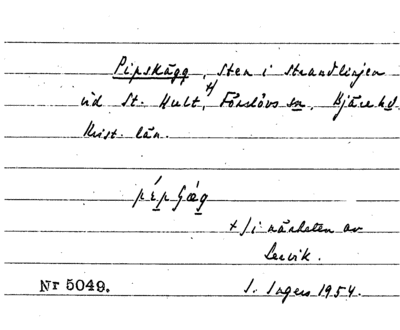 Pipskägg, sten i strandlinjen
vid St. Hult, x) Förslövs sn. Bjäre hd
Krist. län.
pépšǽg
x) i närheten av
Servik.
Nr 5049. I. Ingers 1954.